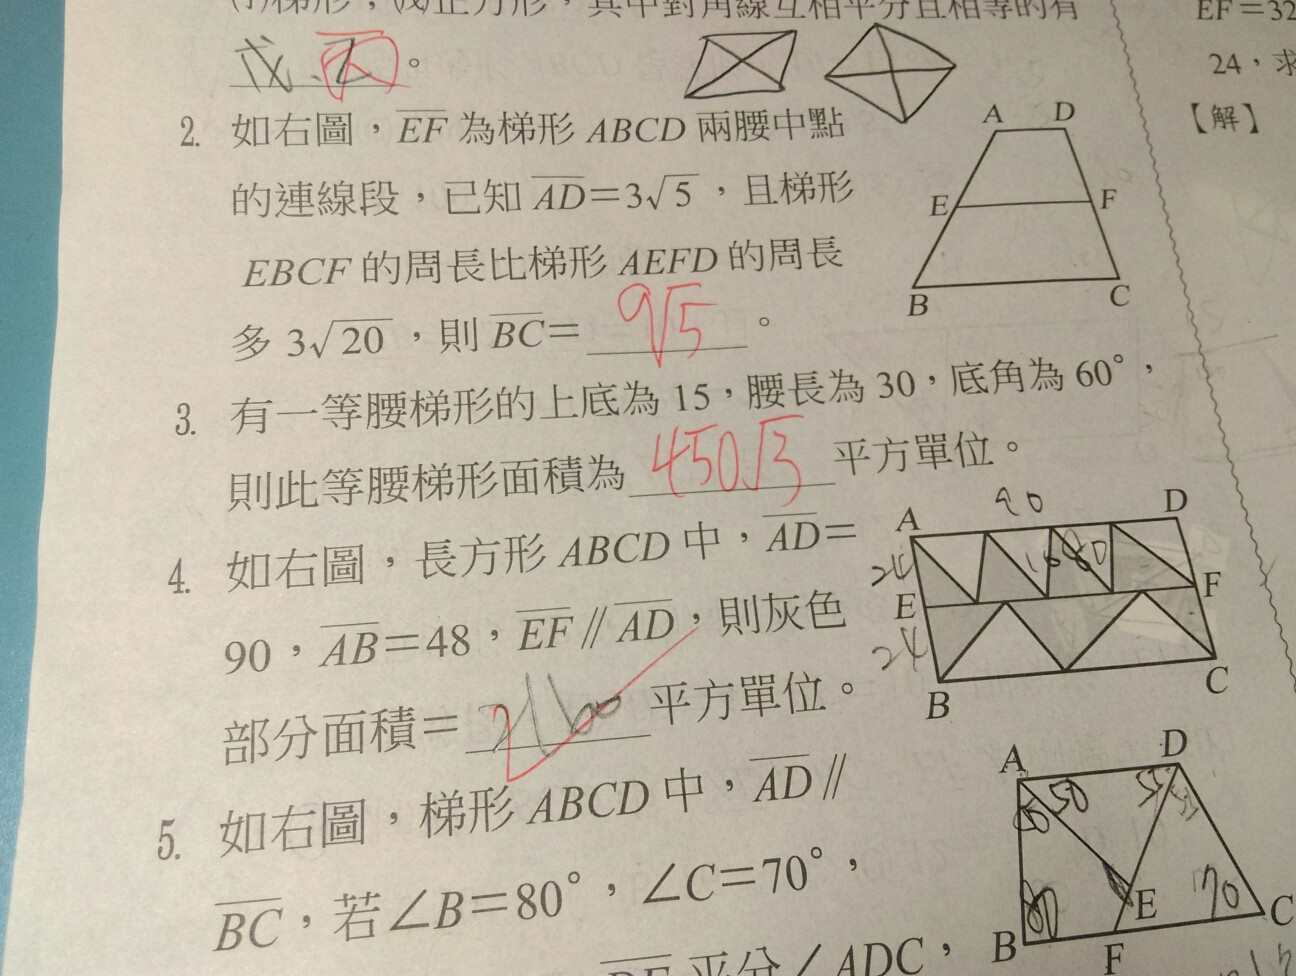 梯形，(戊)正方形，其中對角線互相平分且相等的有
戊、乙 丙。
2. 如右圖，EF 為梯形 ABCD 兩腰中點
的連線段，已知 AD＝3√5，且梯形
EBCF 的周長比梯形 AEFD 的周長
多 3√20，則 BC＝ 9√5 。
A D
E F
B C
3. 有一等腰梯形的上底為 15，腰長為 30，底角為 60°，
則此等腰梯形面積為 450√3 平方單位。
4. 如右圖，長方形 ABCD 中，AD＝
90，AB＝48，EF∥AD，則灰色
部分面積＝ 2160 平方單位。
A 90 D
24 E F
24 B C
5. 如右圖，梯形 ABCD 中，AD∥
BC，若∠B＝80°，∠C＝70°，
平分∠ADC，
A D
50 50 55 55
80 E 70
B F C
EF＝32
24，求
【解】